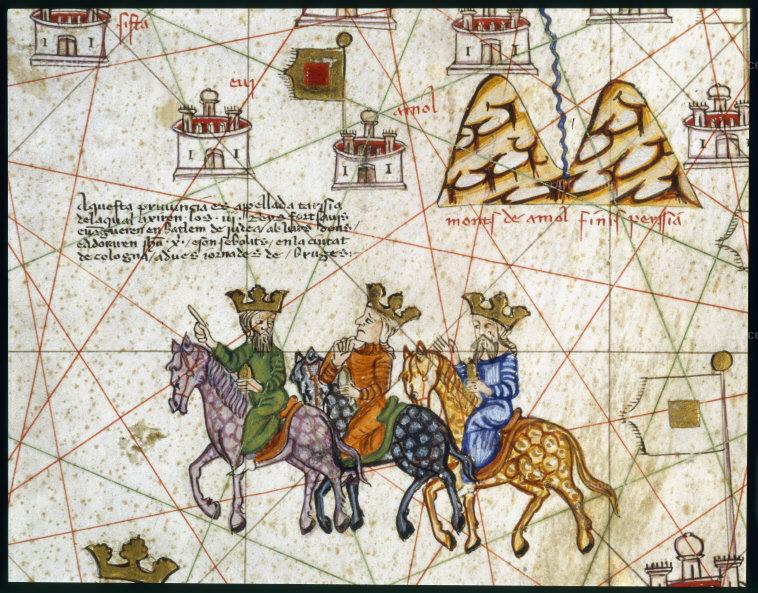 sista
eui
amol
Aquesta pruuincia es apellada tarssia
dela qual axiren los · iii · Reys fort sauis
e uagueren en batlem de judea / ab lurs dons
e adoraren jhu · x · / e son sebolits / en la ciutat
de cologna / a dues iornades de / bruges :
monts de amol finis perssia